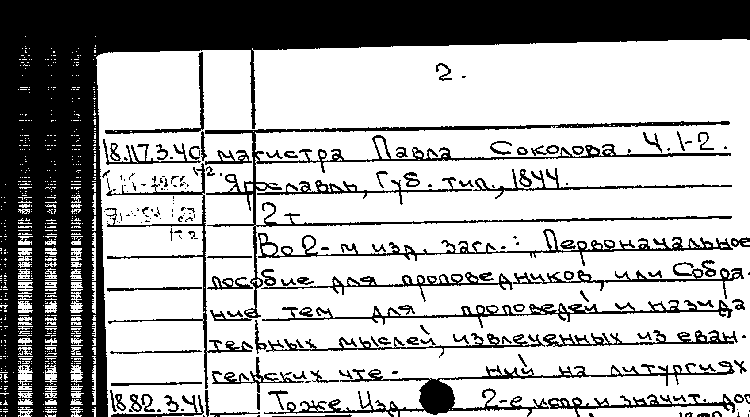 2.
18.117.3.40 магистра Павла Соколова. Ч. 1-2.
Ярославль, Губ. тип., 1844.
2 т.
Во 2-м изд. загл.: „Первоначальное
пособие для проповедников, или Собра-
ние тем для проповедей и назида
тельных мыслей, извлеченных из еван-
гельских чте- ний на литургиях
18.82.3.41 Тоже. Изд. 2-е, испр. и значит. доп.